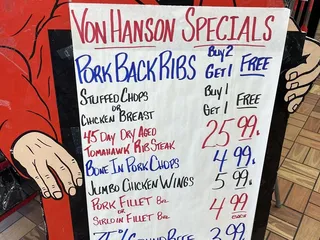 VON HANSON SPECIALS
PORK BACK RIBS Buy 2 Get 1 FREE
STUFFED CHOPS
OR
CHICKEN BREAST
Buy 1 Get 1 FREE
45 DAY DRY AGED
TOMAHAWK RIB STEAK 25.99
BONE IN PORK CHOPS 4.99
JUMBO CHICKEN WINGS 5.99
PORK FILLET
OR
SIRLOIN FILLET
4.99 EACH
3.99